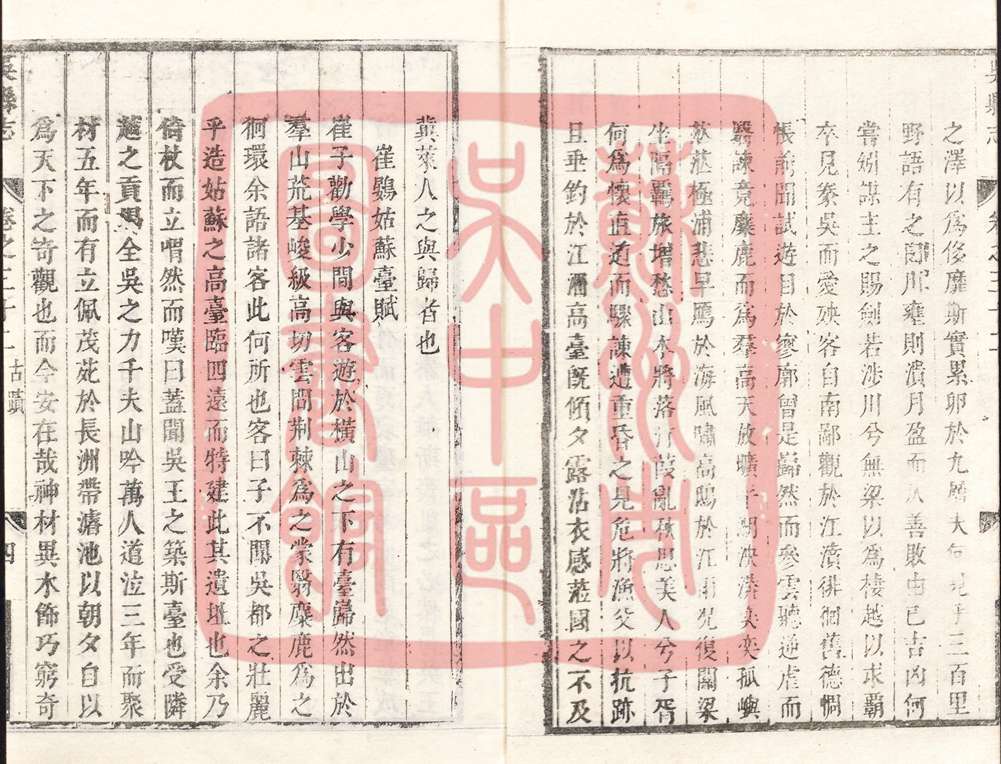 之澤以爲侈靡斯實累卵於九層大乎三百里
野語有之川壅則潰月盈而善敗由已吉凶何
嘗矧謀主之賜劍若涉川兮無梁以爲棲越以求霸
卒見豢吳而愛殃客自南鄙觀於江濆徘徊舊德惆
悵前聞試遊目於寥廓曾是巋然而參雲聽逆虐而
諫竟麋鹿而爲羣高天放曠平湖泱漭奕奕孤嶼
茫茫極浦悲早鴈於海風嘯高鴟於江雨况復關梁
坐隔羈旅增愁山木將落汀葭亂秋思美人兮子胥
何爲懷直道而驟諫遭重昏之見危將漁父以抗跡
且垂釣於江湄高臺旣傾夕露沾衣感茲國之不及
冀萊人之與歸者也
崔鷃姑蘇臺賦
崔子勸學少間與客遊於橫山之下有臺巋然出於
羣山荒基峻級高切雲間荆棘爲之蒙翳麋鹿爲之
徊環余語諸客此何所也客曰子不聞吳都之壯麗
乎造姑蘇之高臺臨四遠而特建此其遺址也余乃
倚杖而立喟然而嘆曰蓋聞吳王之築斯臺也受隣
越之貢罄全吳之力千夫山吟萬人道泣三年而聚
材五年而有立佩茂苑於長洲帶濬池以朝夕自以
爲天下之竒觀也而今安在哉神材異木飾巧窮奇
吳縣志
卷之三十二
古蹟
四
蘇州市
吳中區
圖書館